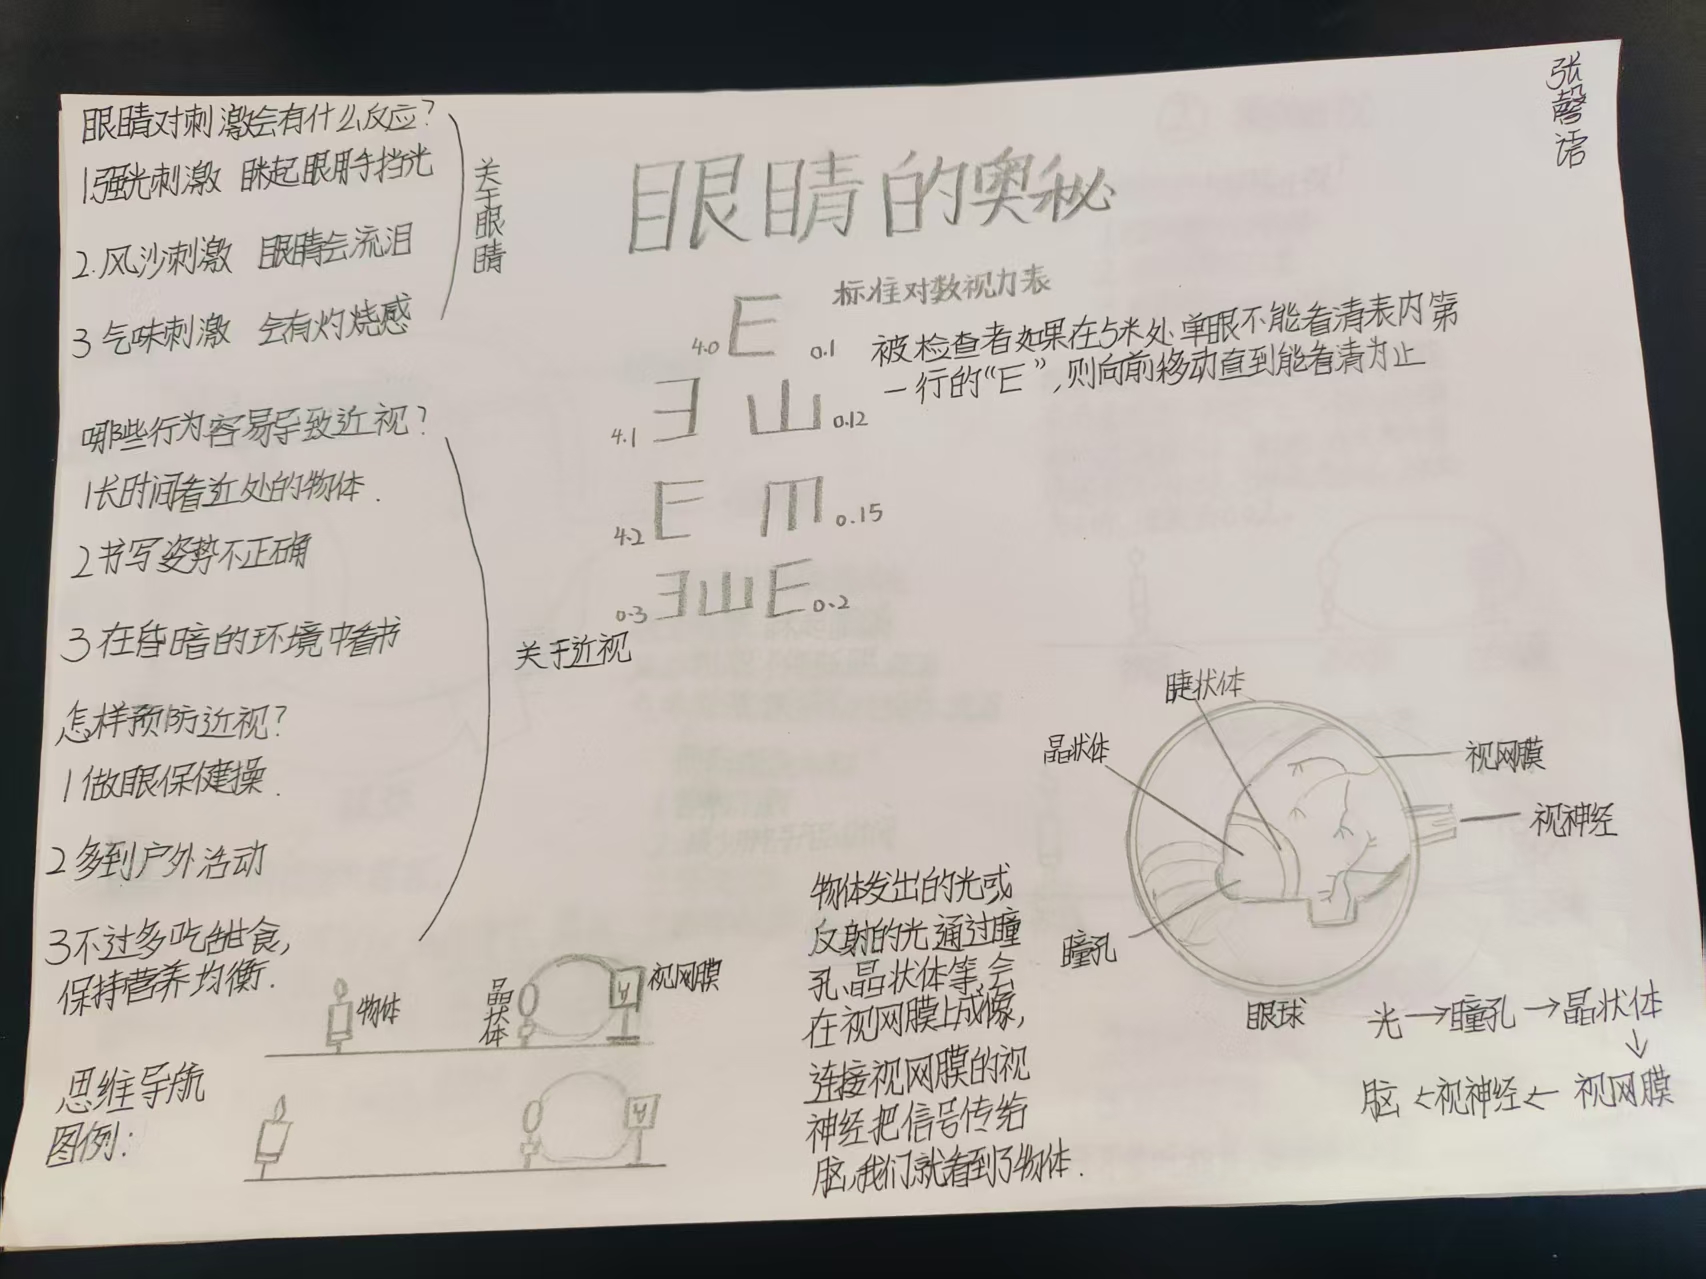 张馨语
眼睛的奥秘
眼睛对刺激会有什么反应?
1强光刺激 眯起眼用手挡光
2.风沙刺激 眼睛会流泪
3气味刺激 会有灼烧感
关于眼睛
哪些行为容易导致近视?
1长时间看近处的物体.
2书写姿势不正确
3在昏暗的环境中看书
怎样预防近视?
1做眼保健操.
2多到户外活动
3不过多吃甜食,
保持营养均衡.
关于近视
标准对数视力表
4.0 E 0.1
4.1 E E 0.12
4.2 E E 0.15
0.3 E E E 0.2
被检查者如果在5米处单眼不能看清表内第
一行的“E”,则向前移动直到能看清为止
思维导航
图例:
物体
晶状体
视网膜
物体发出的光或
反射的光通过瞳
孔、晶状体等,会
在视网膜上成像,
连接视网膜的视
神经把信号传给
脑,我们就看到了物体.
睫状体
晶状体
瞳孔
视网膜
视神经
眼球
光→瞳孔→晶状体
↓
脑←视神经←视网膜